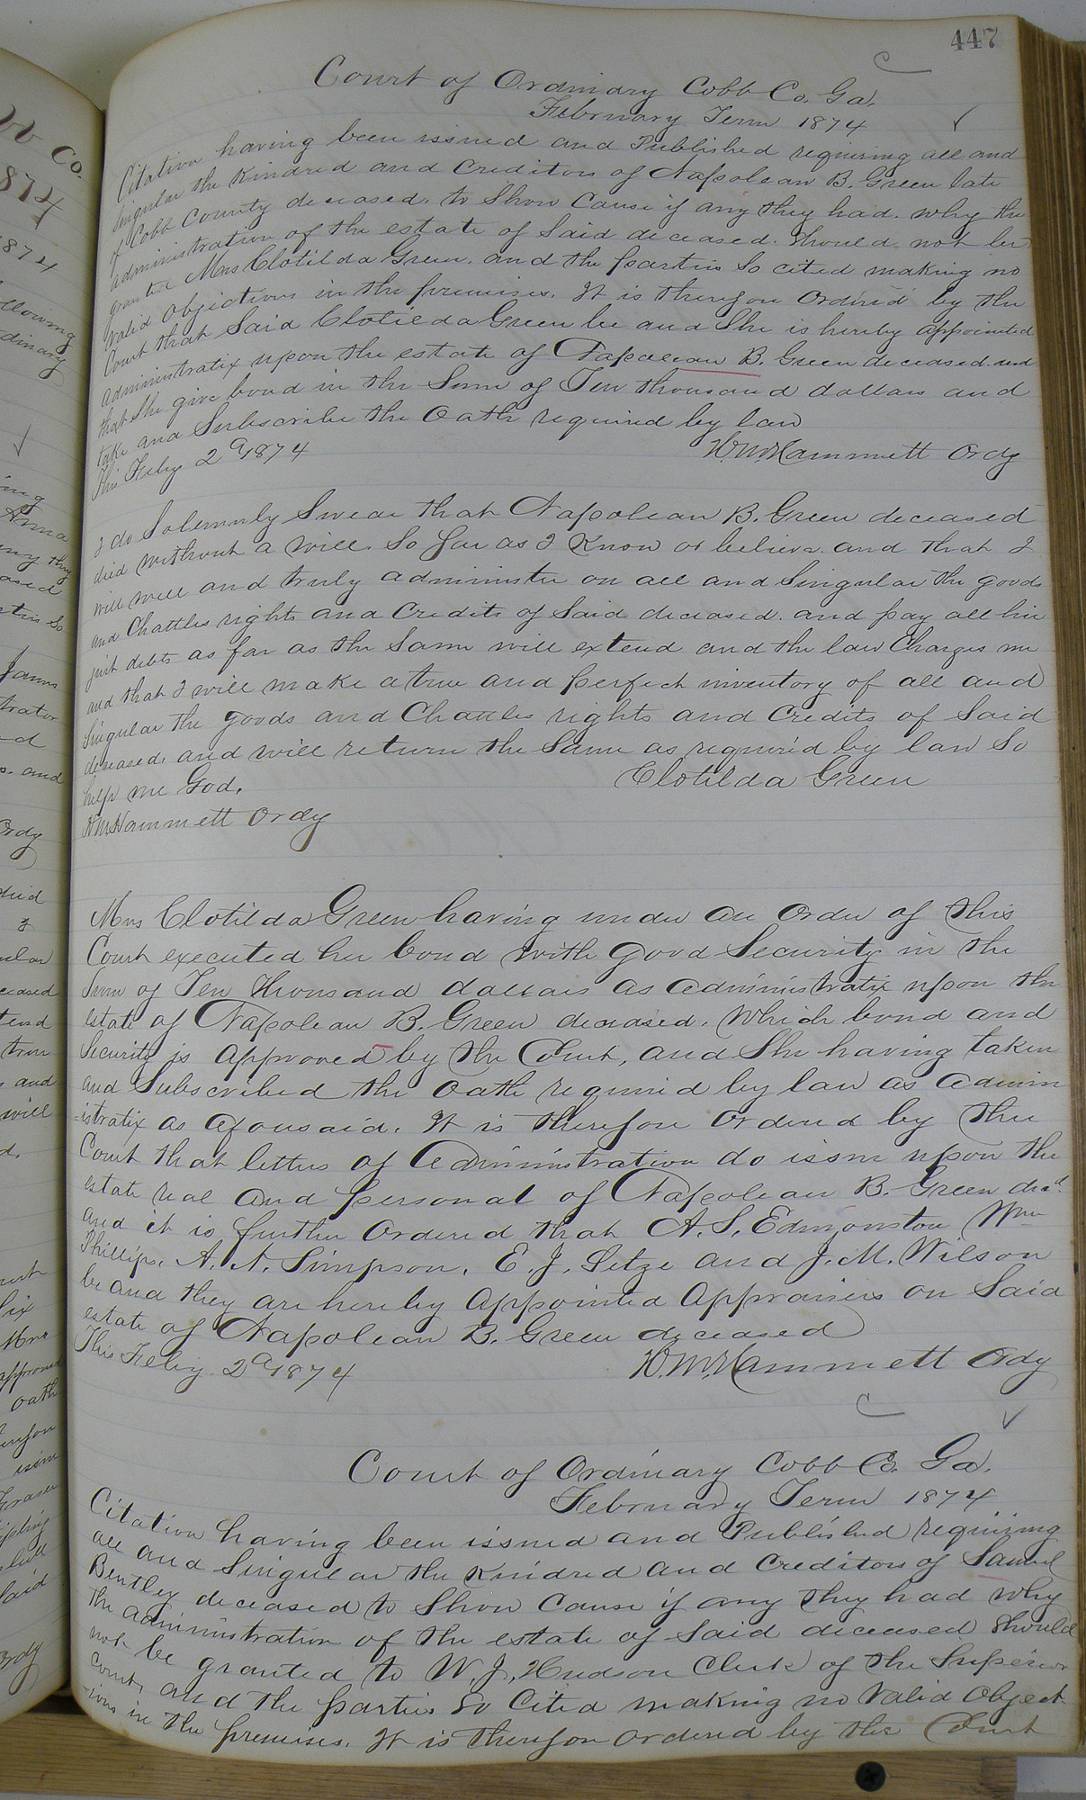 447
Court of Ordinary Cobb Co. Ga.
February Term 1874
Citation having been issued and Published requiring all and
Singular the Kindred and Creditors of Napolean B. Green late
of Cobb County deceased. to Show Cause if any they had. why the
administration of the estate of Said deceased. Should not be
granted Mrs Clotilda Green. and the parties So cited making no
valid objections in the premises. It is therefore Ordered by the
Court that Said Clotilda Green be and She is hereby appointed
Administratix upon the estate of Napolean B. Green deceased. and
that She give bond in the Sum of Ten thousand dollars and
take and Subscribe the Oath required by law
This Feby 2d 1874 W. M. Hammett Ordy
I do Solemnly Swear that Napolean B. Green deceased
died without a will. So far as I Know or believe. and that I
will well and truly administer on all and Singular the goods
and Chattles rights and Credits of Said deceased. and pay all his
just debts as far as the Same will extend and the law Charges me
and that I will make a true and perfect inventory of all and
Singular the goods and Chattles rights and Credits of Said
deceased. and will return the Same as required by law So
help me God. Clotilda Green
W M Hammett Ordy
Mrs Clotilda Green having under an Order of this
Court executed her bond with good Security in the
Sum of Ten Thousand dollars as administratix upon the
estate of Napolean B. Green deceased. Which bond and
Security is approved by the Court, and She having taken
and Subscribed the Oath required by law as admin
=istratix as aforesaid. It is therefore Ordered by the
Court that letters of Administration do issue upon the
estate real and personal of Napolean B. Green decd.
and it is further Ordered that A. S. Edmonston Wm
Phillips. A. N. Simpson. E. J. Setze and J. M. Wilson
be and they are hereby Appointed Appraisers on Said
estate of Napolean B. Green deceased
This Feby 2d 1874 W. M. Hammett Ordy
Court of Ordinary Cobb Co. Ga.
February Term 1874
Citation having been issued and Published requiring
all and Singular the Kindred and Creditors of Samuel
Bentley deceased to Show Cause if any they had why
the administration of the estate of Said deceased Should
not be granted to W. J. Hudson Clerk of the Superior
Court, and the parties So Cited making no Valid Object
=ions in the premises. It is therefore ordered by the Court